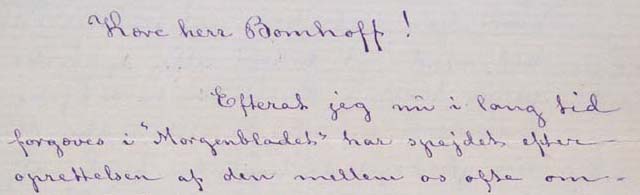 Kære herr Bomhoff!
Efterat jeg nû i lang tid
forgæves i "Morgenbladet" har spejdet efter
oprettelsen af den mellem os ofte om-